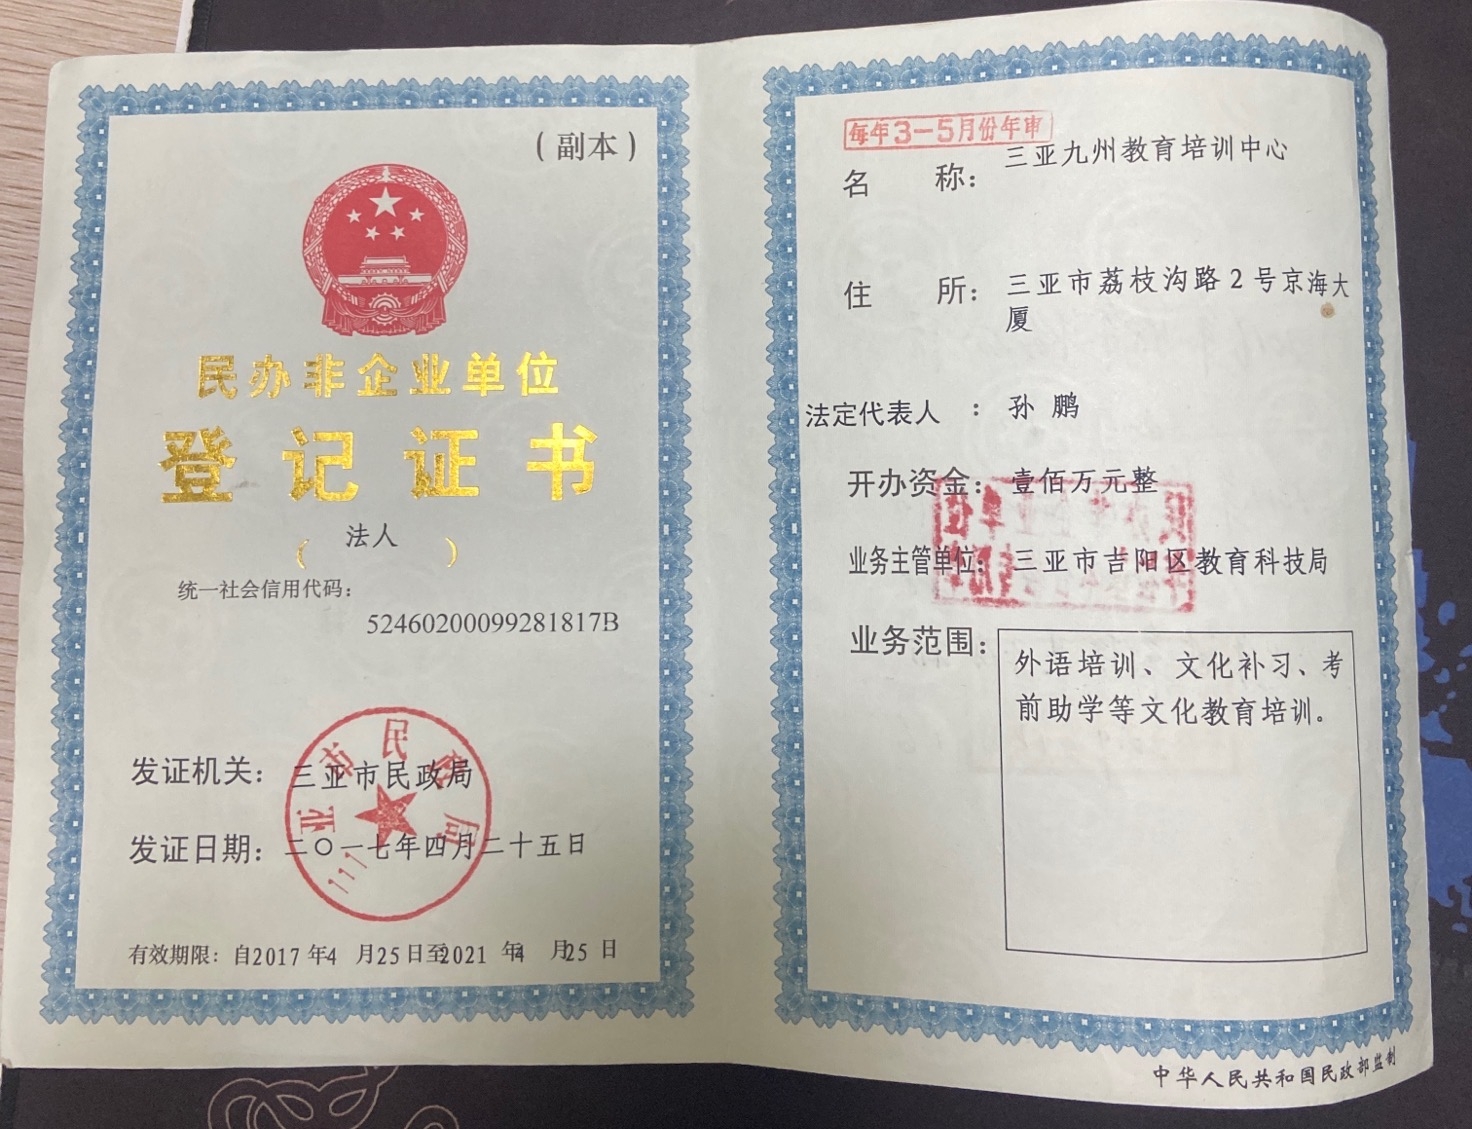 （副本）
民办非企业单位
登记证书
（法人）
统一社会信用代码：
52460200099281817B
发证机关：三亚市民政局
发证日期：二〇一七年四月二十五日
有效期限：自2017年4月25日至2021年4月25日
三亚市民政局
每年3-5月份年审
名称：三亚九州教育培训中心
住所：三亚市荔枝沟路2号京海大
厦
法定代表人：孙鹏
开办资金：壹佰万元整
业务主管单位：三亚市吉阳区教育科技局
业务范围：外语培训、文化补习、考
前助学等文化教育培训。
中华人民共和国民政部监制